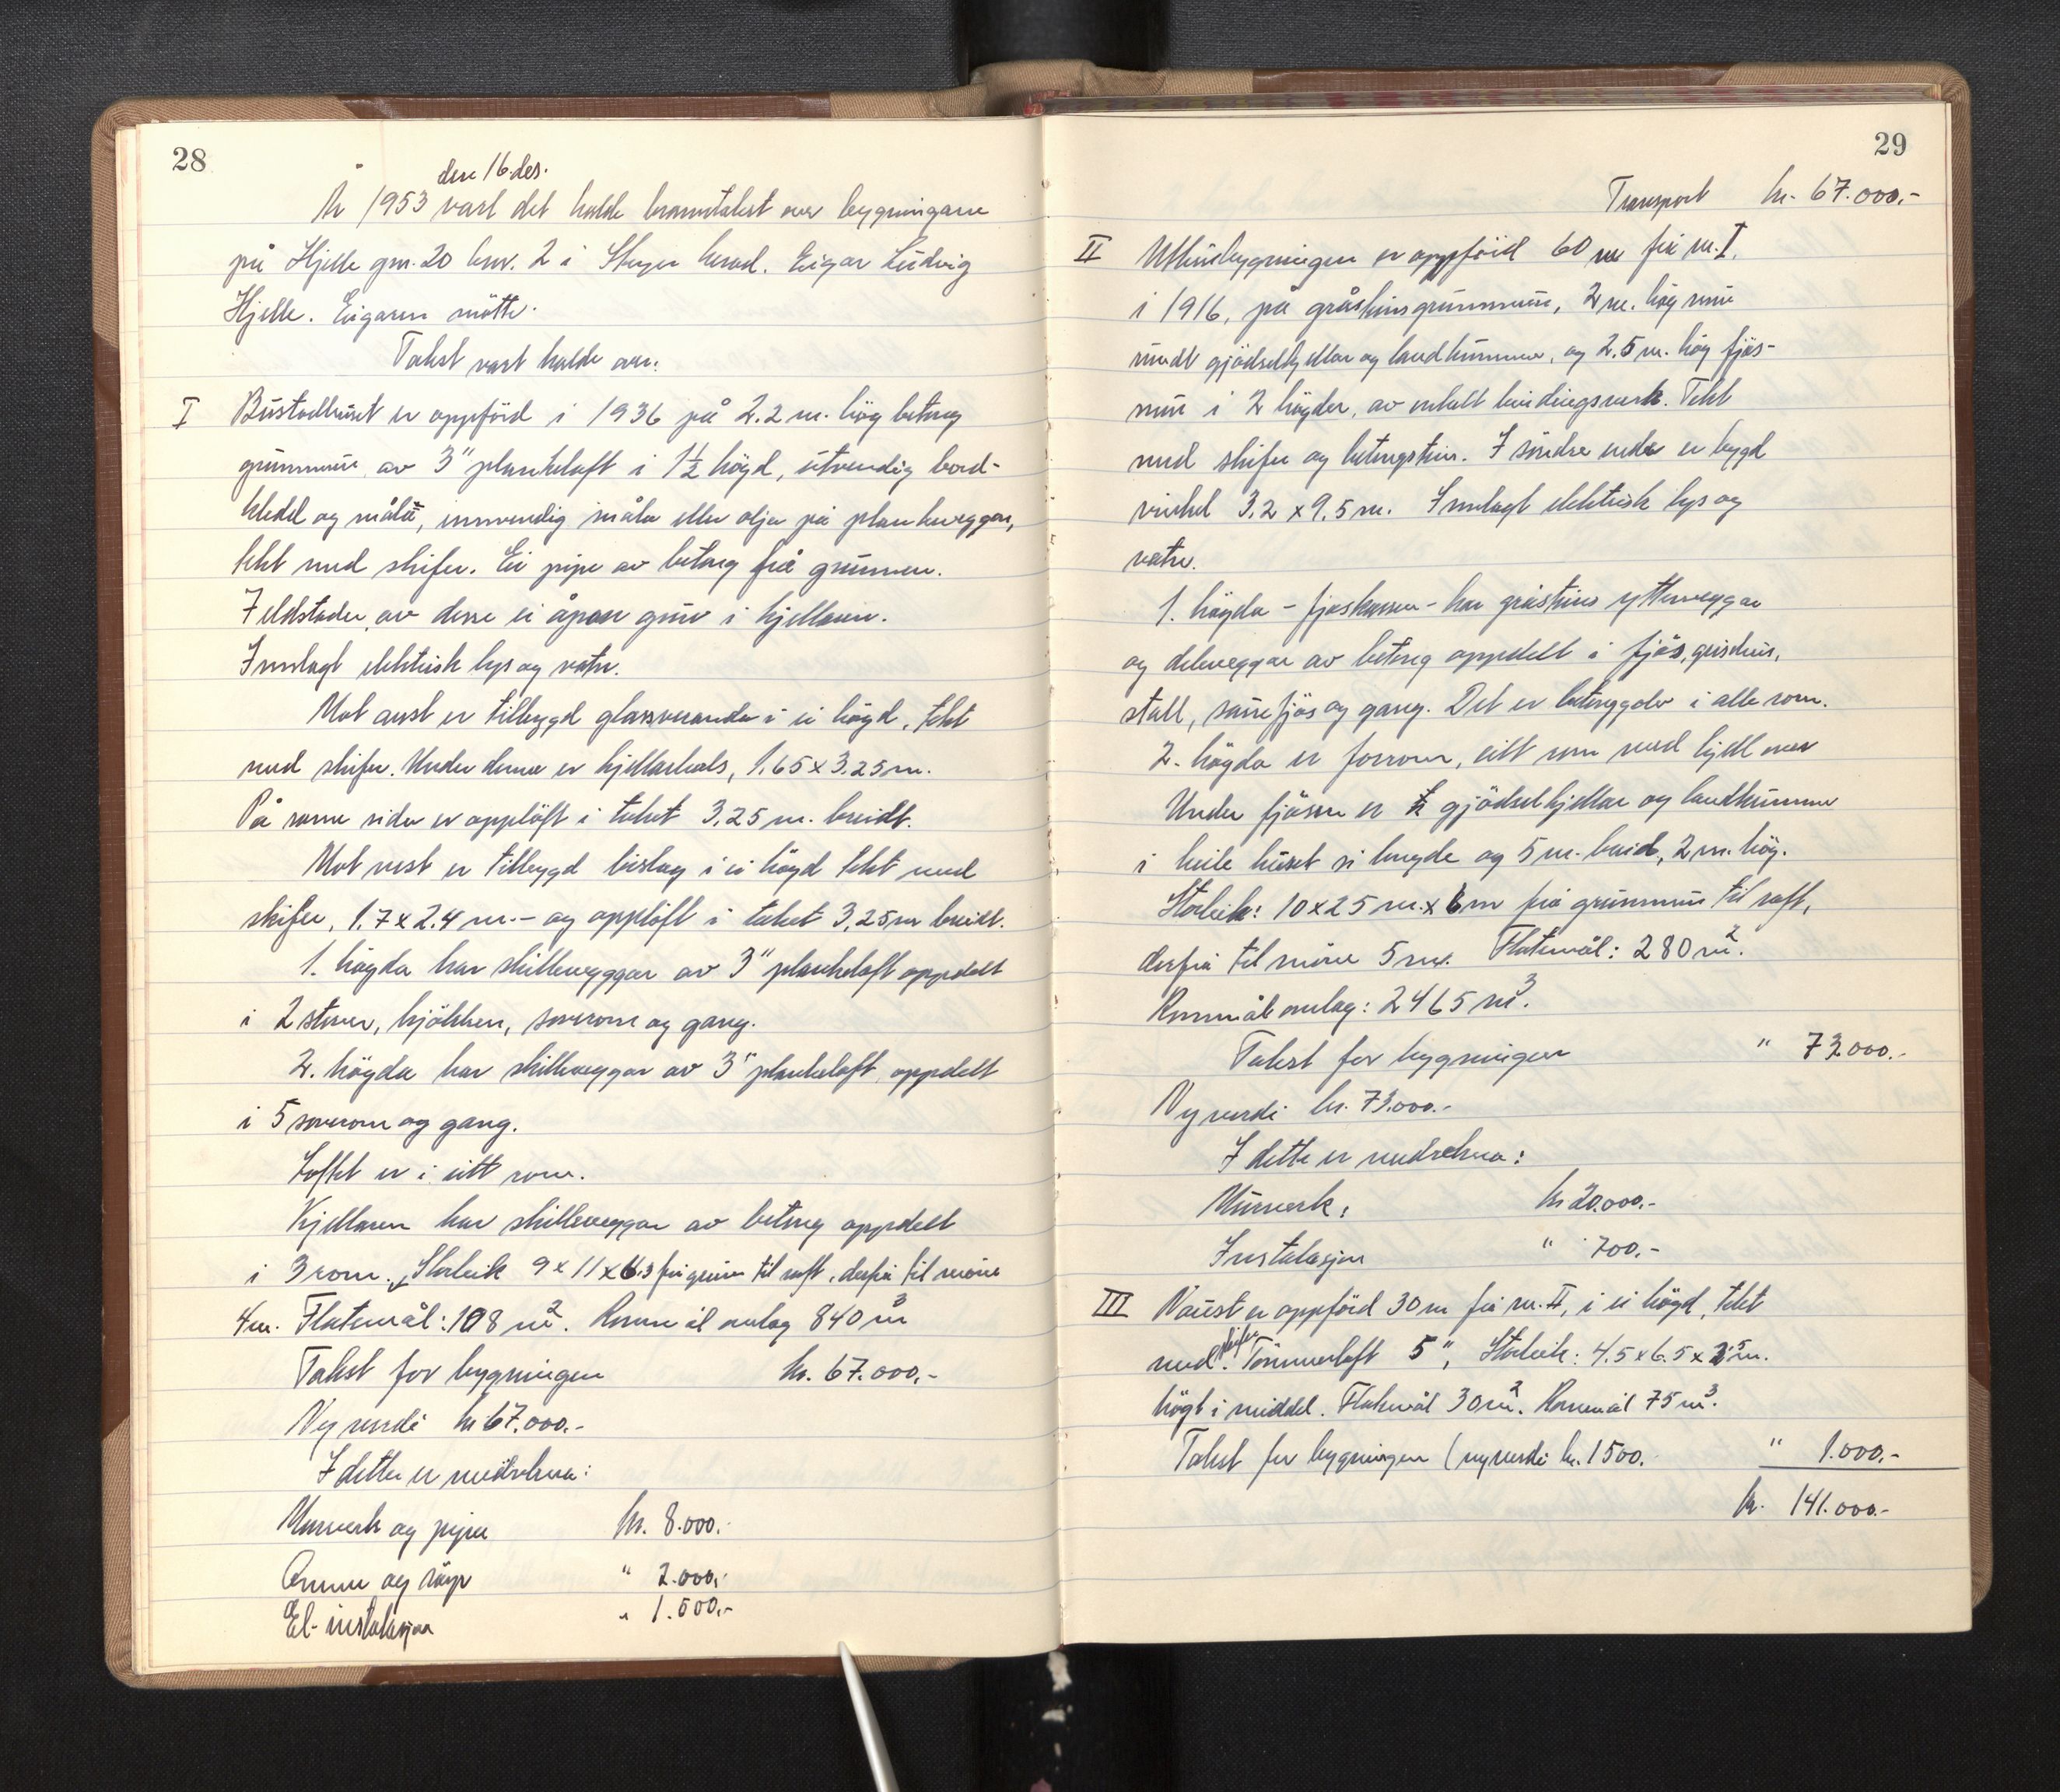 28
den 16. des.
År 1953 vart det halde branntakst over bygningane
på Hjelle gnr. 20 bnr. 2 i Stryn herad. Eigar Ludvig
Hjelle. Eigaren møtte.
Takst vart halde over:
I Bustadhuset er oppförd i 1936 på 2.2 m. hög betong
grunnmur, av 3" plankelaft i 1½ högd, utvendig bord-
kledd og måla, innvendig måla eller olja på plankveggar,
tekt med skifer. Ei pipe av betong frå grunnen.
7 eldstader, av desse ei åpen gruv i kjellaren.
Innlagt elektrisk lys og vatn.
Mot aust er tilbygd glassveranda i ei högd, tekt
med skifer. Under denne er kjellarhals, 1.65 x 3.25 m.
På same side er opplöft i taket 3,25 m. breidt.
Mot vest er tilbygd bislag i ei högd tekt med
skifer, 1.7 x 2.4 m. - og opplöft i taket 3,25 m breidt.
1. högda har skilleveggar av 3" plankelaft oppdelt
i 2 stover, kjökken, soverom og gang.
2. högda har skilleveggar av 3" plankelaft oppdelt
i 5 soverom og gang.
Loftet er i eitt rom.
Kjellaren har skilleveggar av betong oppdelt
i 3 rom. Storleik 9 x 11 x 6.3 frå grunn til raft, derfrå til möne
4 m. Flatemål: 108 m². Rommål omlag 840 m³
Takst for bygningen kr. 67.000,-
Ny verdi kr. 67.000.-
I dette er medrekna:
Murverk og pipe kr. 8.000.-
Omnar og röyr " 2.000,-
El-instalasjon " 1.500,-
29
Transport kr. 67.000,-
II Uthusbygningen er oppförd 60 m frå nr. I,
i 1916, på gråsteinsgrunnmur, 2 m. hög mur
rundt gjödselkjellar og landkummer, og 2.5 m. hög fjös-
mur i 2 högder, av enkelt bindingsverk. Tekt
med skifer og betongstein. I söndre ende er bygd
vinkel 3.2 x 9.5 m. Innlagt elektrisk lys og
vatn.
1. högda - fjöskassen - har gråsteins yttervegger
og deleveggar av betong oppdelt i fjös, grisehus,
stall, sauefjös og gang. Det er betonggolv i alle rom.
2. högda er forrom, eitt rom med hjell over
Under fjösen er gjödselkjellar og landkummer
i heile huset si lengde og 5 m. breid, 2 m. hög.
Storleik: 10 x 25 m. x 6 m frå grunnmur til raft,
derfrå til möne 5 m. Flatemål: 280 m².
Rommål omlag: 2465 m³.
Takst for bygningen " 73.000.-
Ny verdi kr. 73.000.-
I dette er medrekna:
Murverk, kr 20.000.-
Instalasjon " 700.-
III Naust er oppförd 30 m frå nr. II, i ei högd, tekt
med skifer. Tömmerlaft 5", Storleik: 4.5 x 6.5 x 2.5 m.
högt i middel. Flatemål 30 m². Rommål 75 m³.
Takst for bygningen (ny verdi kr. 1500. " 1.000.-
kr. 141.000.-